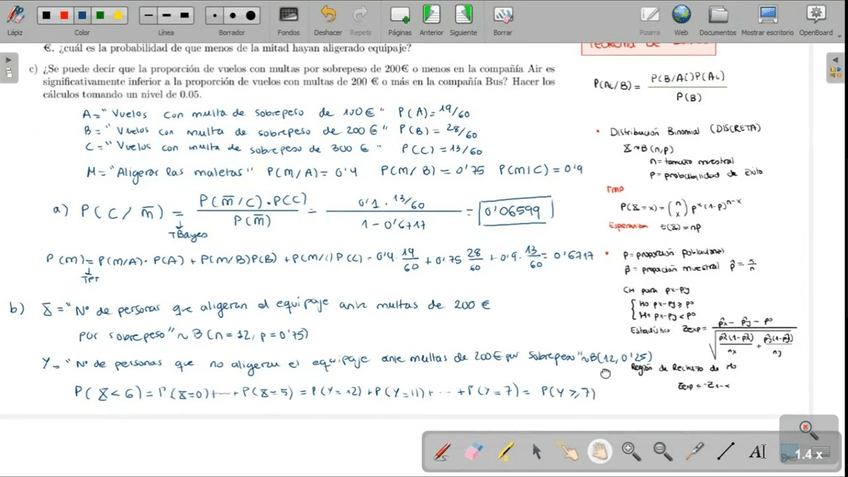 Lápiz Color Línea Borrador Fondos Deshacer Repetir Páginas Anterior Siguiente Borrar Pizarra Web Documentos Mostrar escritorio OpenBoard
€. ¿cuál es la probabilidad de que menos de la mitad hayan aligerado equipaje?
c) ¿Se puede decir que la proporción de vuelos con multas por sobrepeso de 200€ o menos en la compañía Air es
significativamente inferior a la proporción de vuelos con multas de 200 € o más en la compañía Bus? Hacer los
cálculos tomando un nivel de 0.05.
A="Vuelos con multa de sobrepeso de 100€" P(A)=19/60
B="Vuelos con multa de sobrepeso de 200€" P(B)=28/60
C="Vuelos con multa de sobrepeso de 300€" P(C)=13/60
M="Aligerar las maletas" P(M/A)=0'4 P(M/B)=0'75 P(M/C)=0'9
a) P(C/M̅) = P(M̅/C)·P(C) / P(M̅) = 0'1·13/60 / 1-0'6717 = 0'06599
TBayes
P(M)=P(M/A)·P(A)+P(M/B)P(B)+P(M/C)P(C)=0'4·19/60+0'75 28/60+0'9·13/60=0'6717
b) X="Nº de personas que aligeran el equipaje ante multas de 200€
por sobrepeso" ~ B(n=12, p=0'75)
Y="Nº de personas que no aligeran el equipaje ante multas de 200€ por sobrepeso" ~B(12,0'25)
P(X<6)=P(X=0)+···+P(X=5)=P(Y=12)+P(Y=11)+···+P(Y=7)=P(Y≥7)
P(Ai/B)= P(B/Ai)P(Ai) / P(B)
• Distribución Binomial (DISCRETA)
X~B(n,p)
n=tamaño muestral
p=probabilidad de éxito
fmp
P(X=x)=(n x) p^x (1-p)^n-x
Esperanza E(X)=np
• p=proporción poblacional
p̂=proporción muestral p̂=x/n
CH para px-py
H0 px-py≥p0
H1 px-py<p0
Estadístico Zexp= p̂x-p̂y-p0 / √(p̂x(1-p̂x)/nx + p̂y(1-p̂y)/ny)
Región de Rechazo de H0
1.4 x